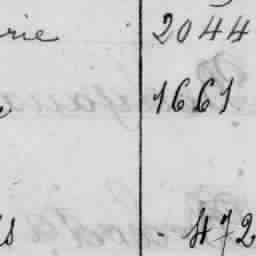 rie 2044
1661
s - 472